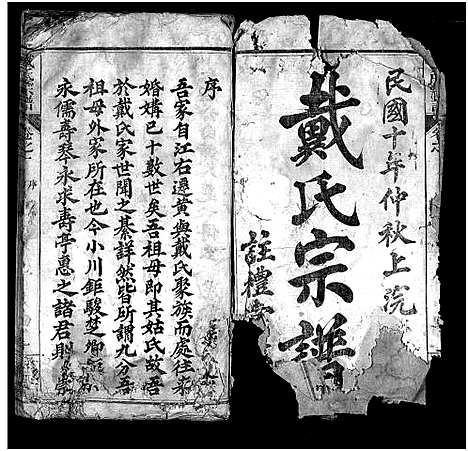 民國十年仲秋上浣
戴氏宗譜
註禮堂
序
吾家自江右遷黄與戴氏聚族而處往來
婚媾已十數世矣吾祖母即其姑氏故吾
於戴氏家世聞之綦詳然皆所謂九分吾
祖母外家所在也今小川鉅駿楚卿
永儒壽琴永求壽亭惠之諸君則